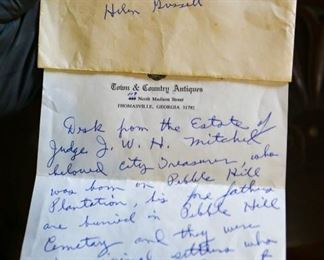 Helen Gussell
Town & Country Antiques
North Madison Street
THOMASVILLE, GEORGIA 31792
Desk from the Estate of
Judge J. W. H. Mitchel
beloved City Treasurer, who
was born on Pebble Hill
Plantation, his fore fathers
are burried in Pebble Hill
Cemetary and they were
settlers who